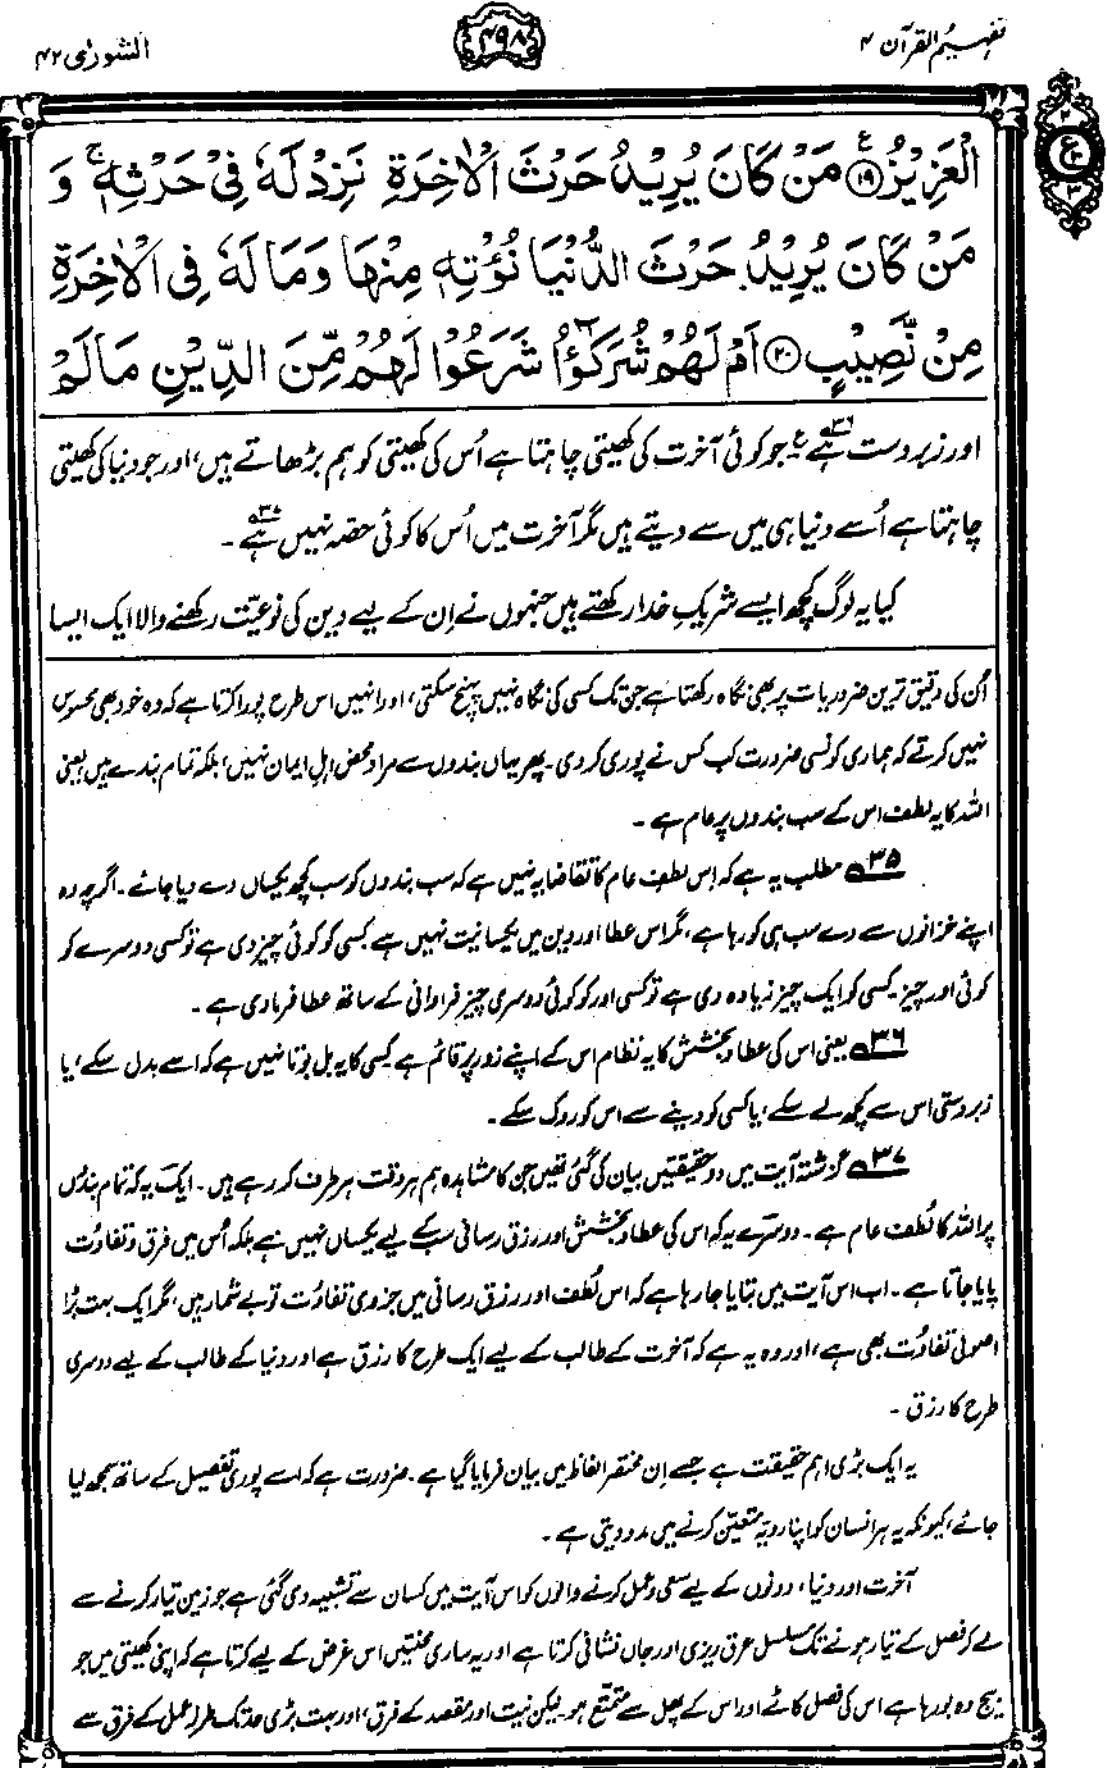 تفہیم القرآن ۴
۴۹۸
الشورٰی ۴۲
الْعَزِيْزُ ۱۹ مَنْ كَانَ يُرِيْدُ حَرْثَ الْاٰخِرَةِ نَزِدْ لَهٗ فِيْ حَرْثِهٖ ۚ وَ
مَنْ كَانَ يُرِيْدُ حَرْثَ الدُّنْيَا نُؤْتِهٖ مِنْهَا وَمَا لَهٗ فِى الْاٰخِرَةِ
مِنْ نَّصِيْبٍ ۲۰ اَمْ لَهُمْ شُرَكٰٓؤُا شَرَعُوْا لَهُمْ مِّنَ الدِّيْنِ مَا لَمْ
اور زبردست ہے۳۶ ع جو کوئی آخرت کی کھیتی چاہتا ہے اُس کی کھیتی کو ہم بڑھاتے ہیں، اور جو دنیا کی کھیتی
چاہتا ہے اُسے دنیا ہی میں سے دیتے ہیں مگر آخرت میں اُس کا کوئی حصہ نہیں ہے۳۷۔
کیا یہ لوگ کچھ ایسے شریکِ خدا رکھتے ہیں جنہوں نے اِن کے لیے دین کی نوعیّت رکھنے والا ایک ایسا
اُن کی دقیق ترین ضروریات پر بھی نگاہ رکھتا ہے جن تک کسی کی نگاہ نہیں پہنچ سکتی، اور انہیں اس طرح پورا کرتا ہے کہ وہ خود بھی محسوس
نہیں کرتے کہ ہماری کونسی ضرورت کب کس نے پوری کر دی۔ پھر یہاں بندوں سے مراد محض اہلِ ایمان نہیں، بلکہ تمام بندے ہیں یعنی
اللہ کا یہ لطف اس کے سب بندوں پر عام ہے۔
۳۵ مطلب یہ ہے کہ اِس لطفِ عام کا تقاضا یہ نہیں ہے کہ سب بندوں کو سب کچھ یکساں دے دیا جائے۔ اگرچہ وہ
اپنے خزانوں سے دے سب ہی کو رہا ہے، مگر اس عطا اور دین میں یکسانیت نہیں ہے کسی کو کوئی چیز دی ہے تو کسی دوسرے کو
کوئی اور چیز۔ کسی کو ایک چیز زیادہ دی ہے تو کسی اور کو کوئی دوسری چیز فراوانی کے ساتھ عطا فرما دی ہے۔
۳۶ یعنی اس کی عطا و بخشش کا یہ نظام اس کے اپنے زور پر قائم ہے کسی کا یہ بل بوتا نہیں ہے کہ اسے بدل سکے، یا
زبردستی اس سے کچھ لے سکے، یا کسی کو دینے سے اس کو روک سکے۔
۳۷ گزشتہ آیت میں دو حقیقتیں بیان کی گئی تھیں جن کا مشاہدہ ہم ہر وقت ہر طرف کر رہے ہیں۔ ایک یہ کہ تمام بندوں
پر اللہ کا لُطف عام ہے۔ دوسرے یہ کہ اس کی عطا و بخشش اور رزق رسانی سب کے لیے یکساں نہیں ہے بلکہ اُس میں فرق و تفاوُت
پایا جاتا ہے۔ اب اس آیت میں بتایا جا رہا ہے کہ اس لُطف اور رزق رسانی میں جزوی تفاوُت تو بے شمار ہیں، مگر ایک بہت بڑا
اصولی تفاوُت بھی ہے، اور وہ یہ ہے کہ آخرت کے طالب کے لیے ایک طرح کا رزق ہے اور دنیا کے طالب کے لیے دوسری
طرح کا رزق۔
یہ ایک بڑی اہم حقیقت ہے جسے اِن مختصر الفاظ میں بیان فرمایا گیا ہے۔ ضرورت ہے کہ اسے پوری تفصیل کے ساتھ سمجھ لیا
جائے، کیونکہ یہ ہر انسان کو اپنا رویّہ متعیّن کرنے میں مدد دیتی ہے۔
آخرت اور دنیا، دونوں کے لیے سعی و عمل کرنے والوں کو اس آیت میں کسان سے تشبیہ دی گئی ہے جو زمین تیار کرنے سے
لے کر فصل کے تیار ہونے تک مسلسل عرق ریزی اور جاں نشانی کرتا ہے اور یہ ساری محنتیں اس غرض کے لیے کرتا ہے کہ اپنی کھیتی میں جو
بیج وہ بو رہا ہے اس کی فصل کاٹے اور اس کے پھل سے متمتّع ہو۔ لیکن نیت اور مقصد کے فرق، اور بہت بڑی حد تک طرزِ عمل کے فرق سے